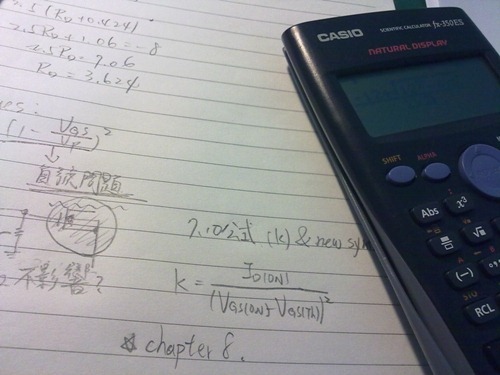 (RD + 0.424)
2.5RD + 1.06 = -8
2.5RD = 9.06
RD = 3.624
(1 - VGS/VP)²
自號問題
不影響?
公式 (k) & new sy
k = ID(ON) / (VGS(ON) - VGS(Th))²
☆ chapter 8.
CASIO
SCIENTIFIC CALCULATOR fx-350ES
NATURAL DISPLAY
SHIFT ALPHA
Abs x³
√
(-)
STO
RCL